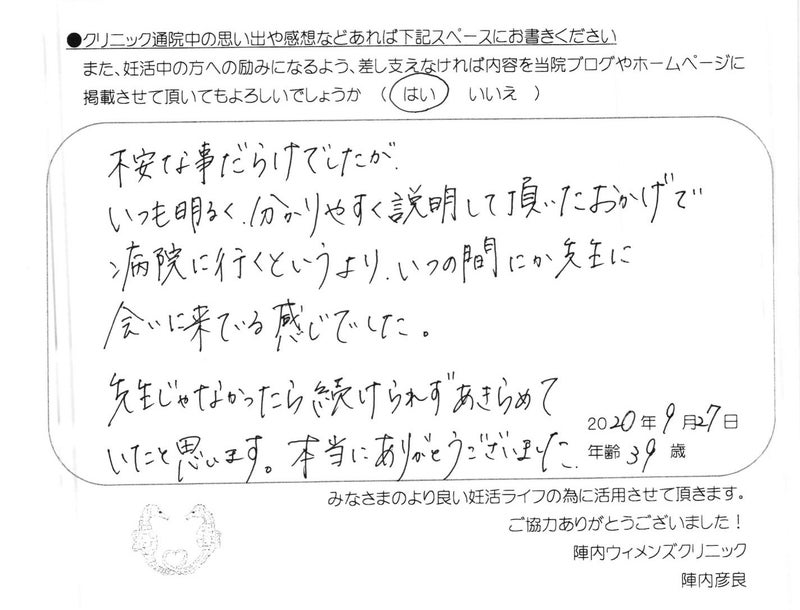 ●クリニック通院中の思い出や感想などあれば下記スペースにお書きください
また、妊活中の方への励みになるよう、差し支えなければ内容を当院ブログやホームページに
掲載させて頂いてもよろしいでしょうか （ はい　いいえ ）
不安な事だらけでしたが、
いつも明るく、分かりやすく説明して頂いたおかげで
病院に行くというより、いつの間にか先生に
会いに来ている感じでした。
先生じゃなかったら続けられずあきらめて
いたと思います。本当にありがとうございました。
2020年9月27日
年齢 39 歳
みなさまのより良い妊活ライフの為に活用させて頂きます。
ご協力ありがとうございました！
陣内ウィメンズクリニック
陣内彦良